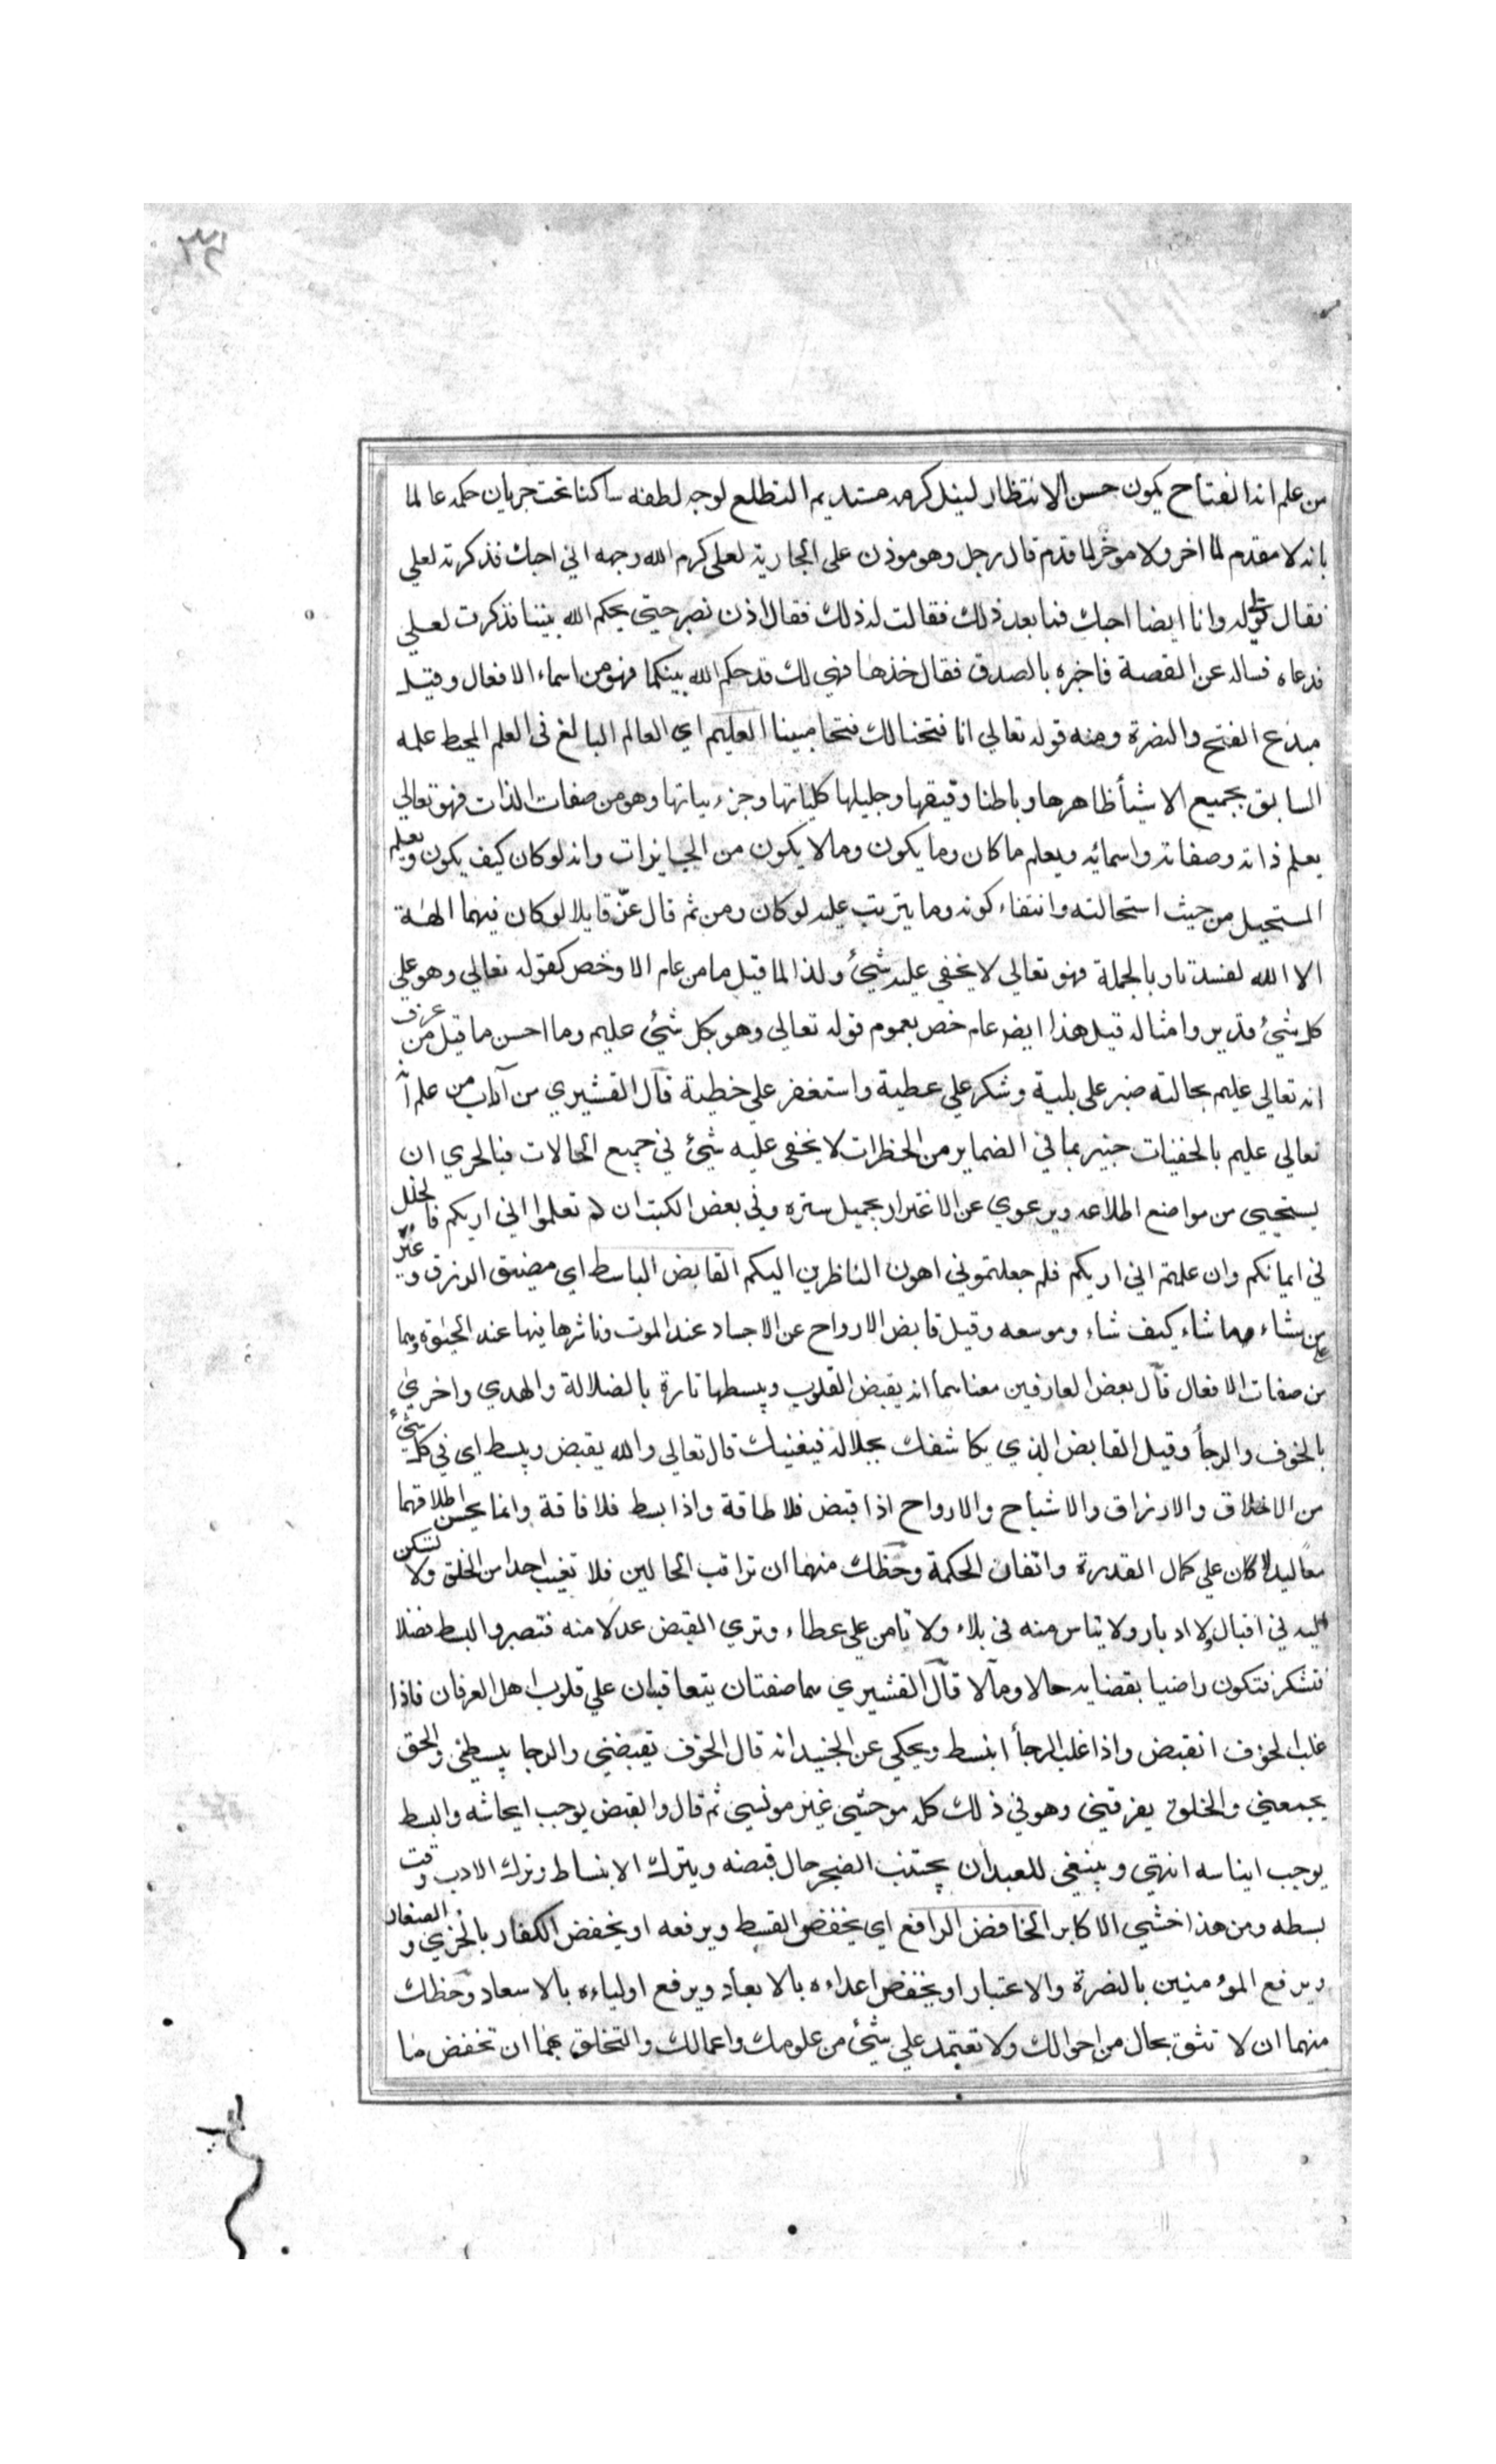 ٣٤
من علم انه الفتاح يكون حسن الانتظار لنيل كرمه مستديم التطلع لوجه لطفه ساكنا تحت جريان حكمه عالما
بانه لا مقدم لما اخر ولا موخر لما قدم قال رجل وهو موذن على الجارية لعلى كرم الله وجهه اني احبك فذكرته لعلي
فقال قولي له وانا ايضا احبك فما بعد ذلك فقالت له ذلك فقال اذن نصبر حتي يحكم الله بيننا فذكرت لعلي
فدعاه فساله عن القصة فاخبره بالصدق فقال خذها فهي لك قد حكم الله بينكما فهو من اسماء الافعال وقيل
مبدع الفتح والنصرة ومنه قوله تعالي انا فتحنا لك فتحا مبينا العليم اي العالم البالغ في العلم المحيط علمه
السابق بجميع الاشيأ ظاهرها وباطنا دقيقها وجليلها كلياتها وجزءيياتها وهو من صفات الذات فهو تعالي
يعلم ذاته وصفاته واسمائه ويعلم ما كان وما يكون وما لا يكون من الجايزات وانه لو كان كيف يكون ويعلم
المستحيل من حيث استحالته وانتفاء كونه وما يترتب عليه لو كان ومن ثم قال عزّ قايلا لو كان فيهما الهة
الا الله لفسدتا وبالجملة فهو تعالي لا يخفي عليه شيئ ولذا لما قيل ما من عام الا وخص كقوله تعالي وهو علي
كل شيئ قدير وامثاله قيل هذا ايضر عام خص بعموم قوله تعالي وهو بكل شيئ عليم وما احسن ما قيل من عرف
انه تعالي عليم بحالته صبر على بلية وشكر علي عطية واستغفر علي خطية قال القشيري من آداب من علم انه
تعالي عليم بالخفيات خبير بما في الضماير من الخطرات لا يخفى عليه شيئ في جميع الحالات فبالحري ان
يستحيي من مواضع اطلاعه ويرعوي عن الاغترار بجميل ستره وفي بعض الكتب ان لم تعلموا اني اريكم فالخلل
في ايمانكم وان علمتم اني اريكم فلم جعلتموني اهون الناظرين اليكم القابض الباسط اي مضيق الرزق و
علي من يشاء ما شاء كيف شاء وموسعه وقيل قابض الارواح عن الاجساد عند الموت وناشرها فيها عند الحيوة وهما
من صفات الافعال قال بعض العارفين معناهما انه يقبض القلوب ويبسطها تارة بالضلالة والهدي واخري
بالخوف والرجأ وقيل القابض الذي يكاشفك بجلاله فيفنيك قال تعالى والله يقبض ويبسط اي في كل شيئ
من الاخلاق والارزاق والاشباح والارواح اذا قبض فلا طاقة واذا بسط فلا فاقة وانما يحسن اطلاقهما
معا ليدلا كان علي كمال القدرة واتقان الحكمة وحظك منهما ان تراقب الحالين فلا تعيب احدا من الخلق ولا تسكن
اليه في اقبال ولا ادبار ولا تياس منه في بلاء ولا تامن علي عطاء وتري القبض عدلا منه فتصبر والبسط فضلا
فتشكر فتكون راضيا بقضايه حالا ومآلا قال القشيري هما صفتان يتعاقبان علي قلوب اهل العرفان فاذا
غلب الخوف انقبض واذا غلب الرجأ انبسط ويحكي عن الجنيد انه قال الخوف يقبضني والرجا يبسطني والحق
يجمعني والخلق يفرقني وهو في ذلك كله موحشي غير مونسي ثم قال والقبض يوجب ايحاشه والبسط
يوجب ايناسه انتهي وينبغي للعبد ان يجتنب الضجر حال قبضه ويترك الانبساط وترك الادب وقت
بسطه ومن هذا خشي الاكابر الخافض الرافع اي يخفض القسط ويرفعه او يخفض الكفار بالخزي والصغار
ويرفع المؤمنين بالنصرة والاعتبار او يخفض اعداءه بالابعاد ويرفع اولياءه بالاسعاد وحظك
منهما ان لا تثق بحال من احوالك ولا تعتمد علي شيئ من علومك واعمالك والتخلق بهما ان تخفض ما